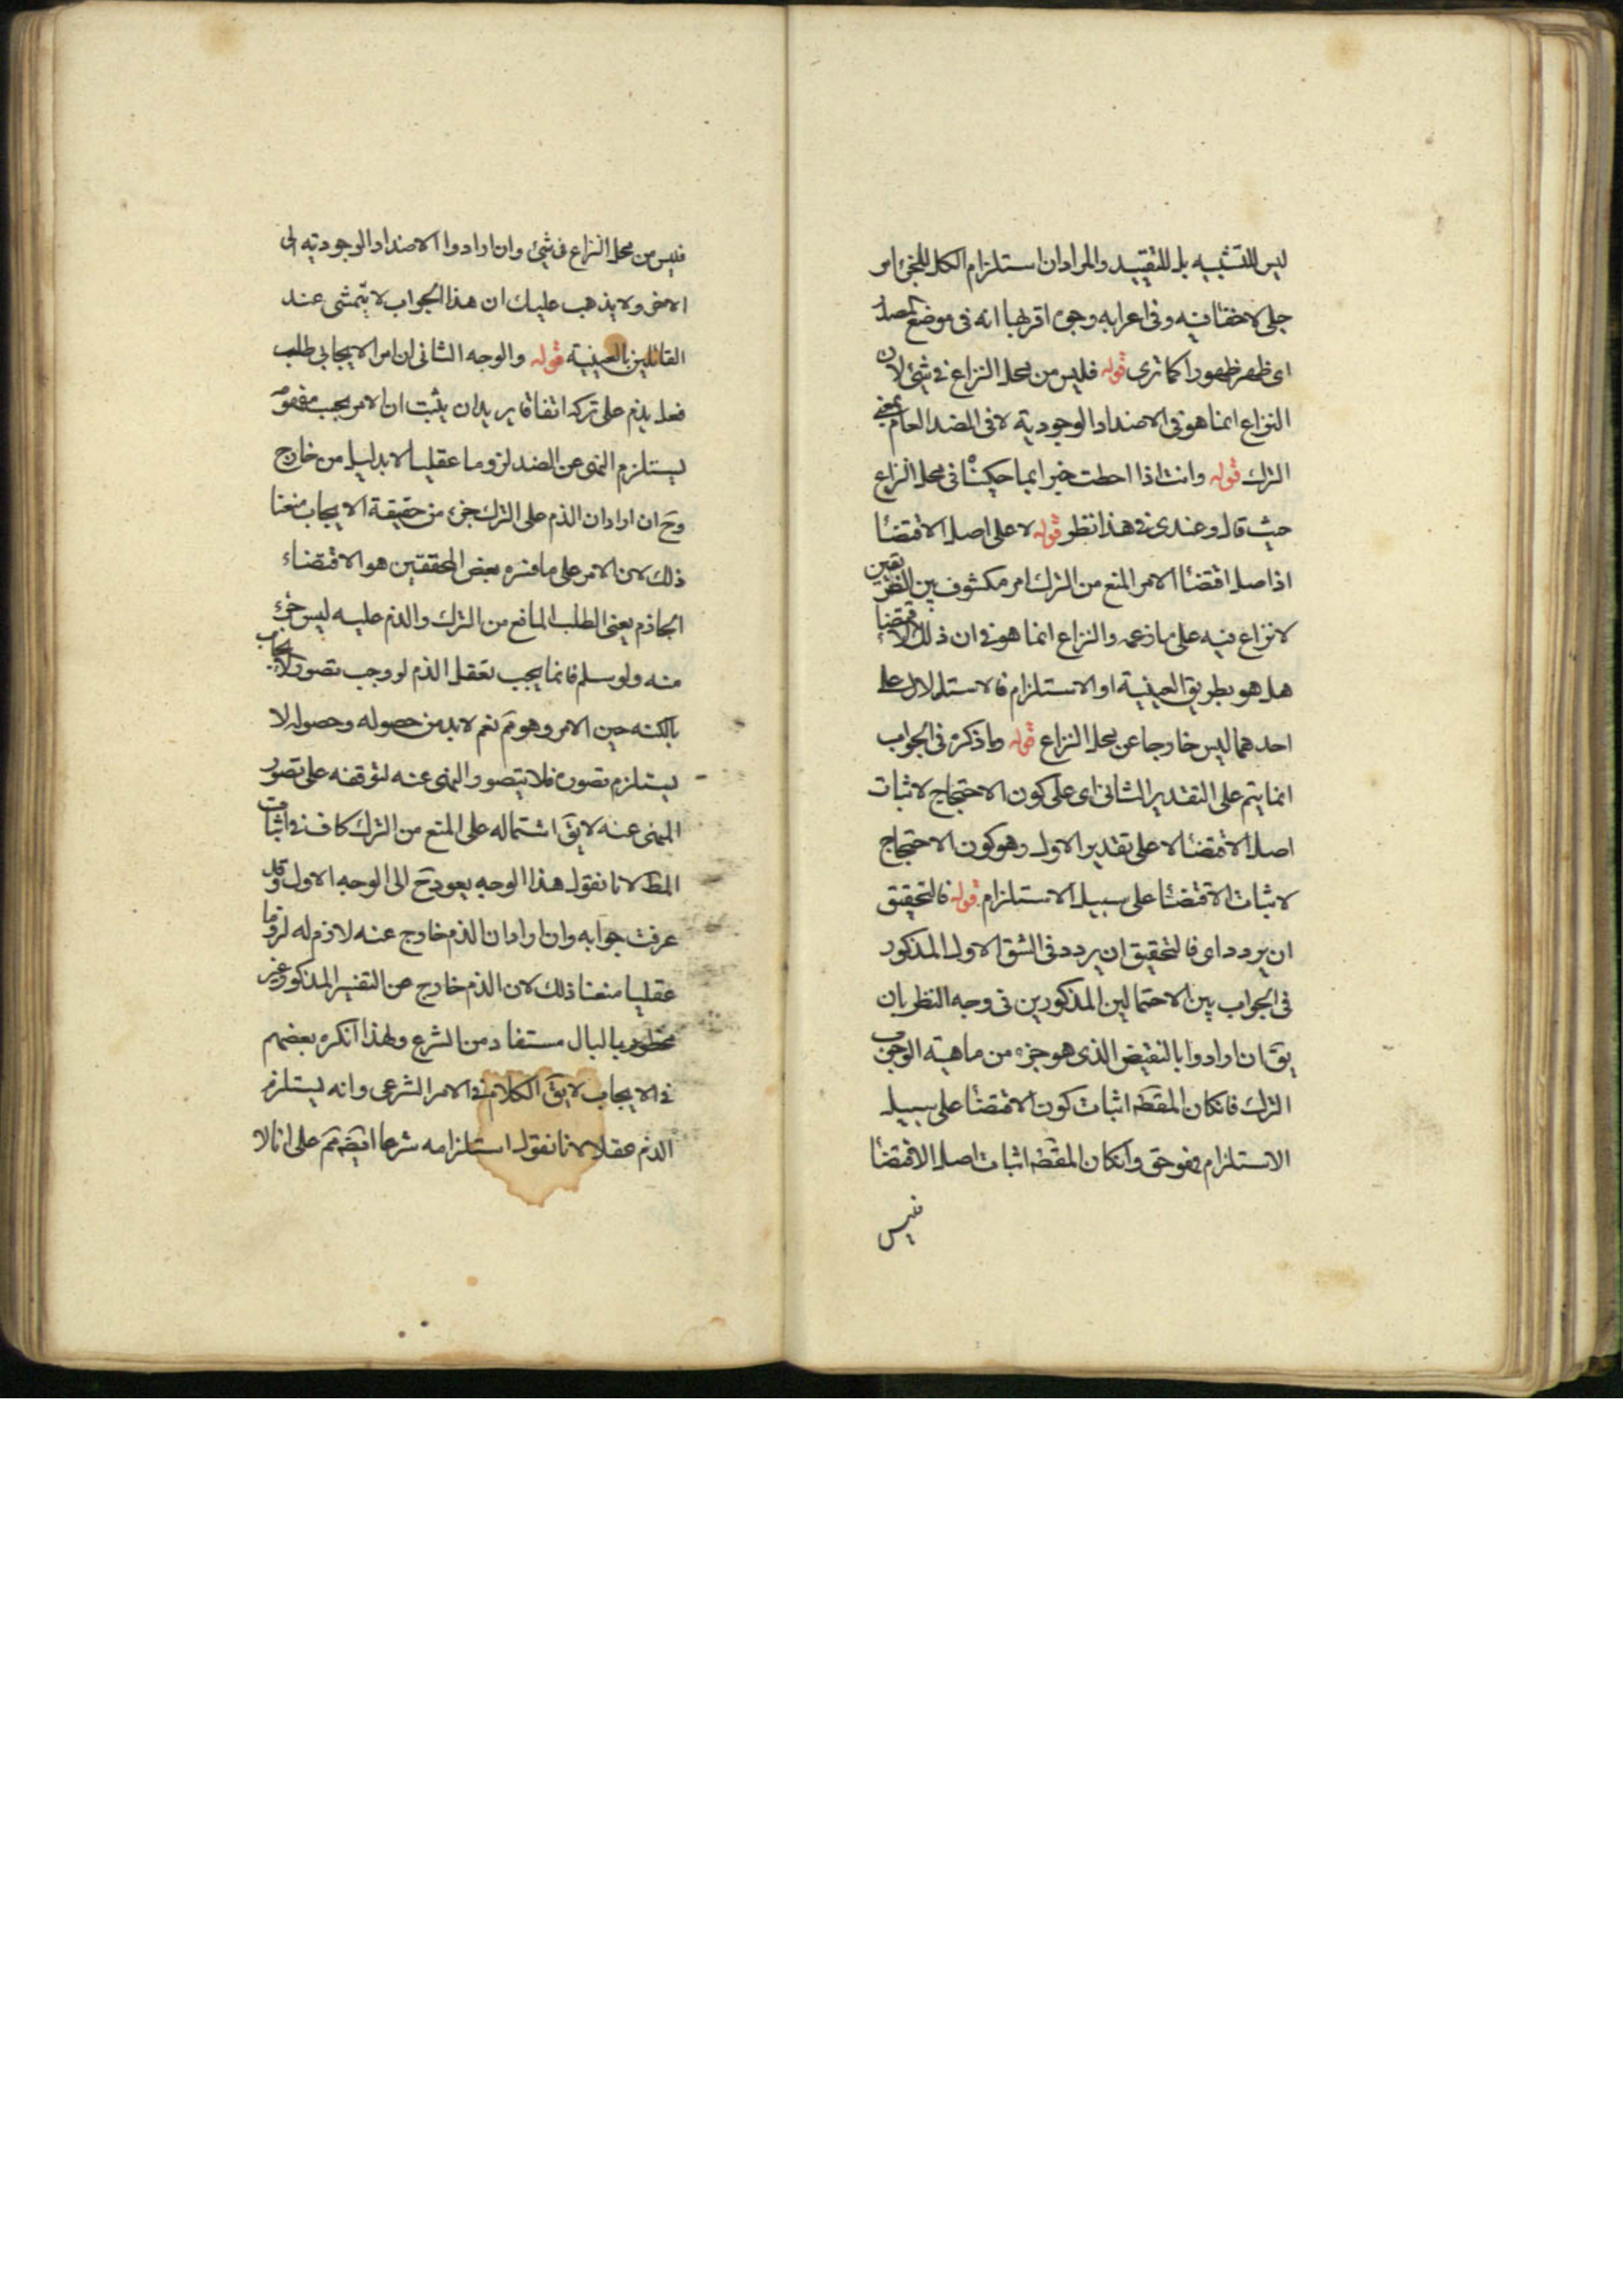 ليس للتشبيه بل للتقييد والمراد ان استلزام الكل للجزء امر
جلى لاخفا فيه وفى اعرابه وجوه اقربها انه فى موضع المصدر
اى ظهر ظهورا كما ترى قوله فليس من محل النزاع فى شئ لان
النزاع انما هو فى الاضداد الوجودية لا فى الضد العام بمعنى
الترك قوله وانت اذا احطت خبرا بما حكيناه فى محل النزاع
حيث قال وعندى فى هذا نظر قوله لا على اصل الاقتضا
اذ اصل اقتضا الامر المنع من الترك امر مكشوف بين الفريقين
لا نزاع فيه على ما زعمه والنزاع انما هو فى ان ذلك الاقتضا
هل هو بطريق العينية او الاستلزام فالاستدلال على
احدهما ليس خارجا عن محل النزاع قوله وما ذكره فى الجواب
انما يتم على التقدير الثانى اى على كون الاحتجاج لاثبات
اصل الاقتضا لا على تقدير الاول وهو كون الاحتجاج
لاثبات الاقتضا على سبيل الاستلزام قوله فالتحقيق
ان يردد اى فالتحقيق ان يردد فى الشق الاول المذكور
فى الجواب بين الاحتمالين المذكورين فى وجه النظر بان
يق ان ارادوا بالنقيض الذى هو جزء من ماهية الوجوب
الترك فانكان المقصد اثبات كون الاقتضا على سبيل
الاستلزام فهو حق وانكان المقصد اثبات اصل الاقتضا
فليس
فليس من محل النزاع فى شئ وان ارادوا الاضداد الوجودية الى
الاخر ولا يذهب عليك ان هذا الجواب لا يتمشى عند
القائلين بالعينية قوله والوجه الثانى ان امر الايجابى طلب
فعل يذم على تركه اتفاقا يريد ان يثبت ان الامر بحسب مفهومه
يستلزم النهى عن الضد لزوما عقليا لا بدليل من خارج
وح ان اراد ان الذم على الترك جزء من حقيقة الايجاب منعنا
ذلك لان الامر على ما فسره بعض المحققين هو الاقتضاء
الجاذم يعنى الطلب المانع من الترك والذم عليه ليس جزء
منه ولو سلم فانما يجب تعقل الذم لو وجب تصور الايجاب
بالكنه حين الامر وهو مم نعم لابد من حصوله وحصوله لا
يستلزم تصوره فلا يتصور المنهى عنه لتوقفه على تصور
المنهى عنه لا يق اشتماله على المنع من الترك كاف فى اثبات
المط لانا نقول هذا الوجه يعود ح الى الوجه الاول وقد
عرفت جوابه وان اراد ان الذم خارج عنه لازم له لزوما
عقليا منعنا ذلك لان الذم خارج عن التفسير المذكور غير
مخطور بالبال مستفاد من الشرع ولهذا انكره بعضهم
فى الايجاب لا يق الكلام فى الامر الشرعى وانه يستلزم
الذم عقلا لانا نقول استلزامه شرعا ايضه مم على انا لا